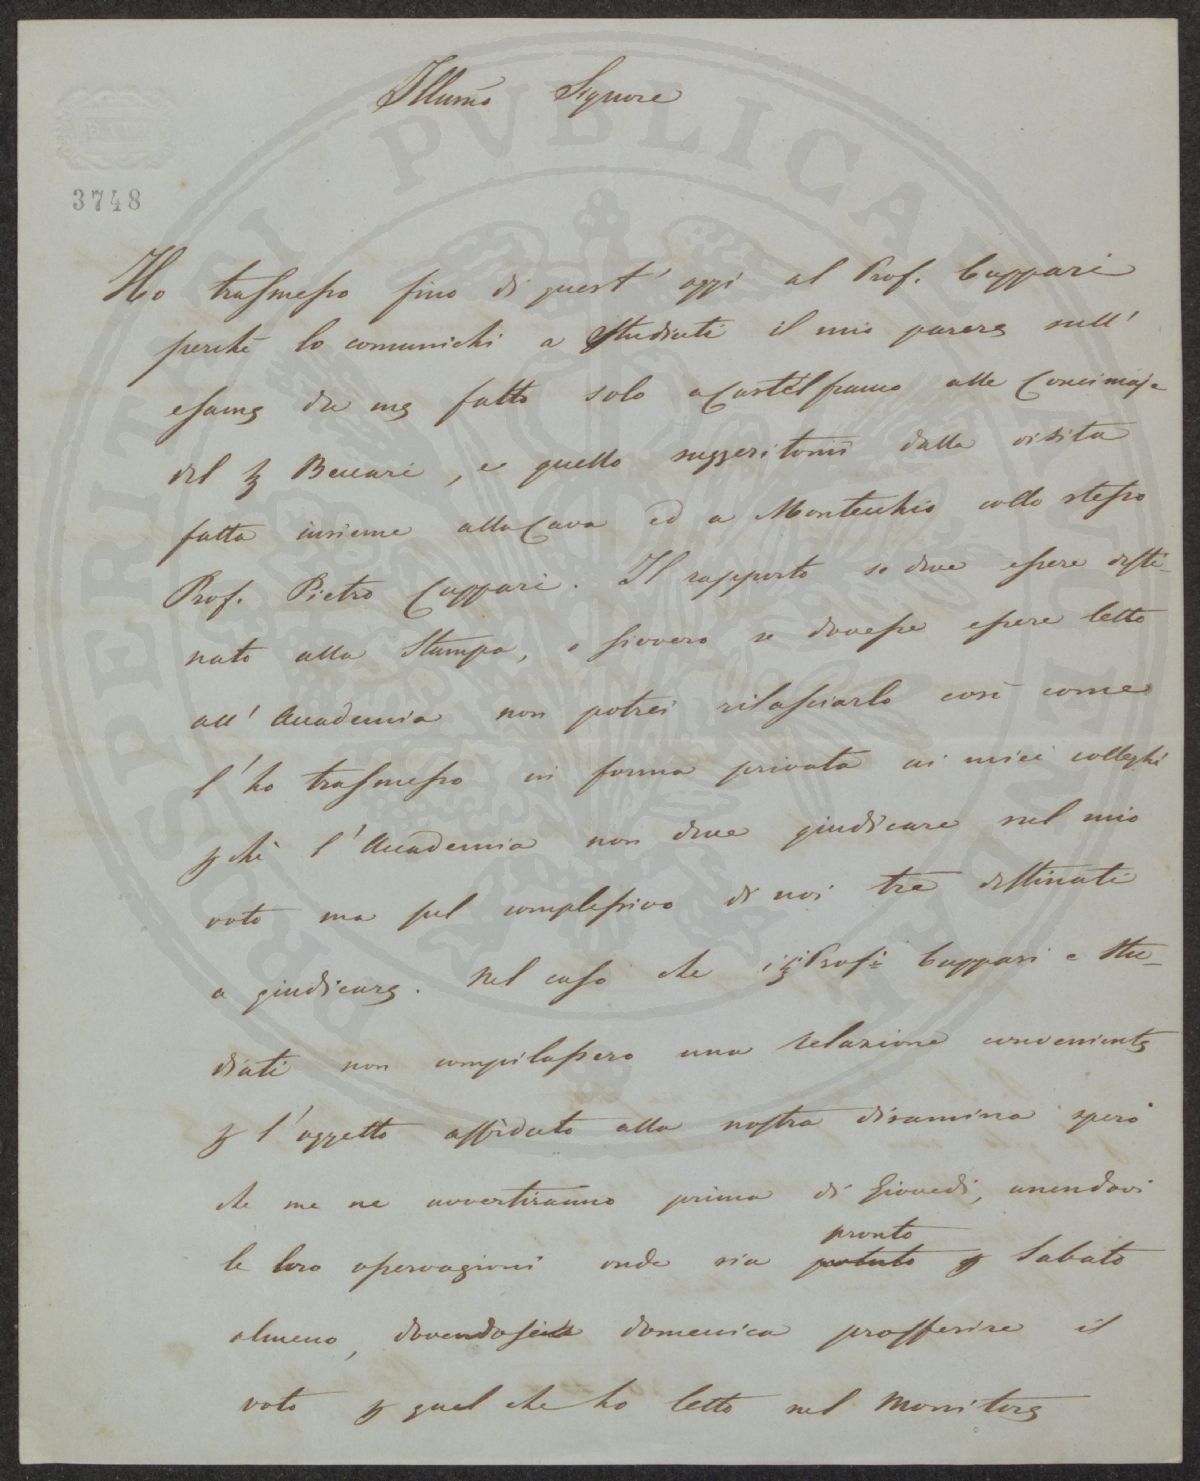 Illumo Signore
3748
Ho trasmesso fino di quest' oggi al Prof. Cuppari
perchè lo comunichi a Studiati il mio parere sull'
esame da me fatto solo a Castelfranco alle Concimaje
del Beccari, e quello suggeritomi dalla visita
fatta insieme alla Cava ed a Montecchio collo stesso
Prof. Pietro Cuppari. Il rapporto se deve essere desti-
nato alla Stampa, o sivvero se dovesse essere letto
all' Accademia non potrei rilasciarlo così come
l' ho trasmesso in forma privata ai miei colleghi
pchè l' Accademia non deve giudicare sul mio
voto ma sul complessivo di noi tre destinati
a giudicare. Nel caso che i Profi Cuppari e Stu-
diati non compilassero una relazione conveniente
p l' oggetto affidato alla nostra disamina spero
che me ne avvertiranno prima di Giovedì, unendovi
le loro osservazioni onde sia pronto p Sabato
almeno, dovendosi domenica profferire il
voto p quel che ho letto nel Monitore
PROSPERITATI PVBLICAE AVGENDAE